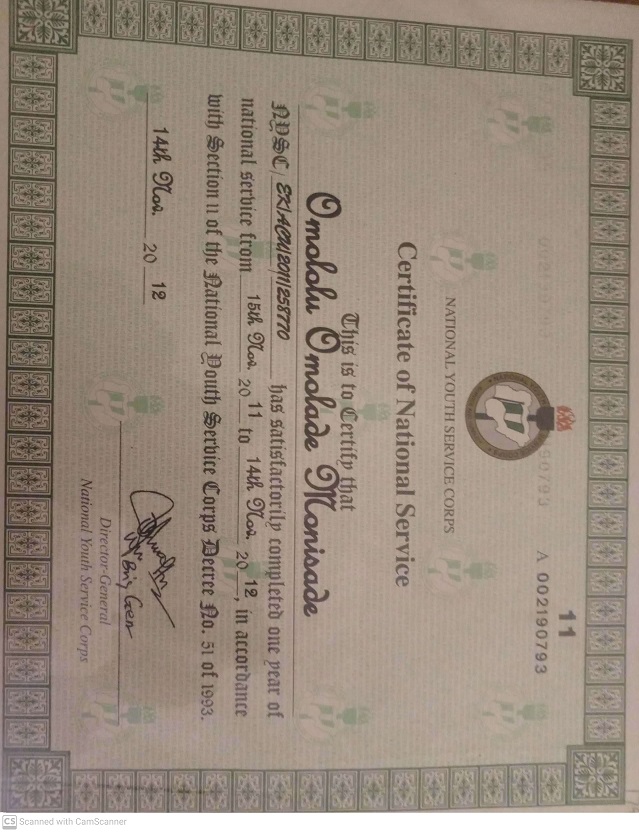 11
A 002190793
NATIONAL YOUTH SERVICE CORPS
Certificate of National Service
This is to Certify that
Omololu Omolade Monisade
NYSC/EK/ACU/2011/258770 has satisfactorily completed one year of
national service from 15th Nov. 20 11 to 14th Nov. 20 12, in accordance
with Section 11 of the National Youth Service Corps Decree No. 51 of 1993.
14th Nov. 20 12
Brig Gen
Director-General
National Youth Service Corps
CS Scanned with CamScanner